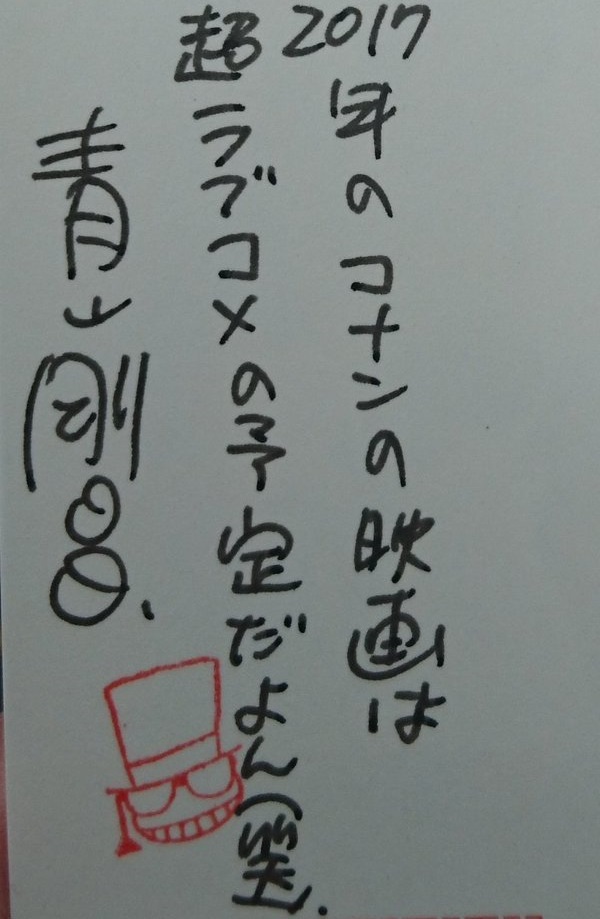 2017年のコナンの映画は
超ラブコメの予定だよん(笑).
青山剛昌.